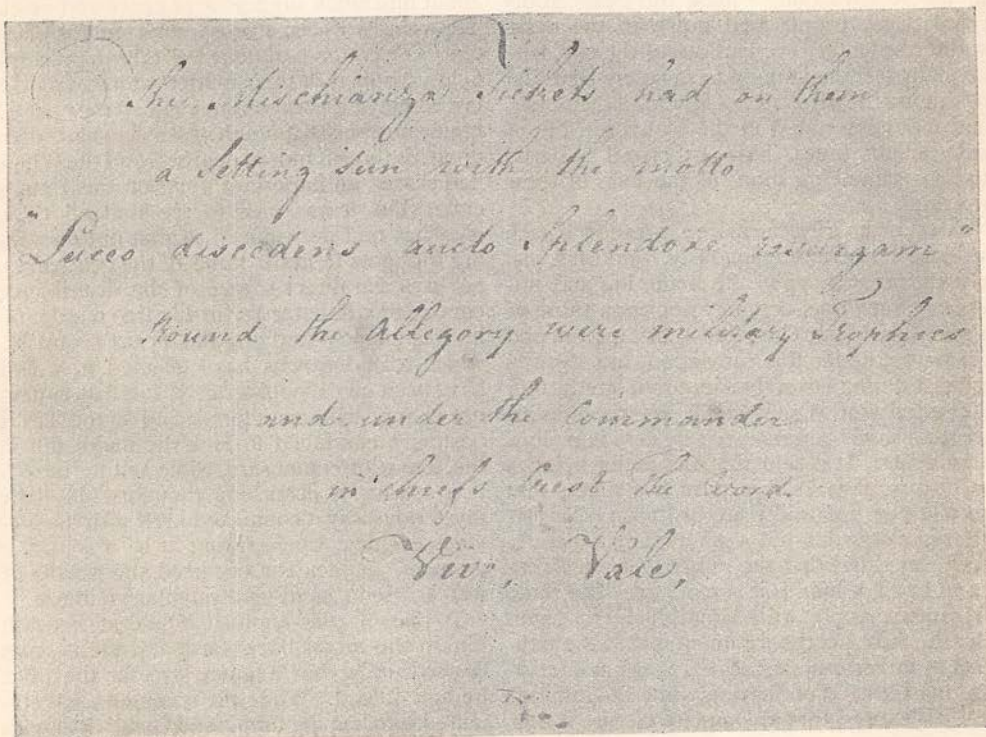 The Mischianza Tickets had on them
a Setting Sun with the motto
"Luceo discedens aucto Splendore resurgam"
Round the Allegory were military Trophies
and under the Commander
in chiefs Crest the word.
Vive, Vale,